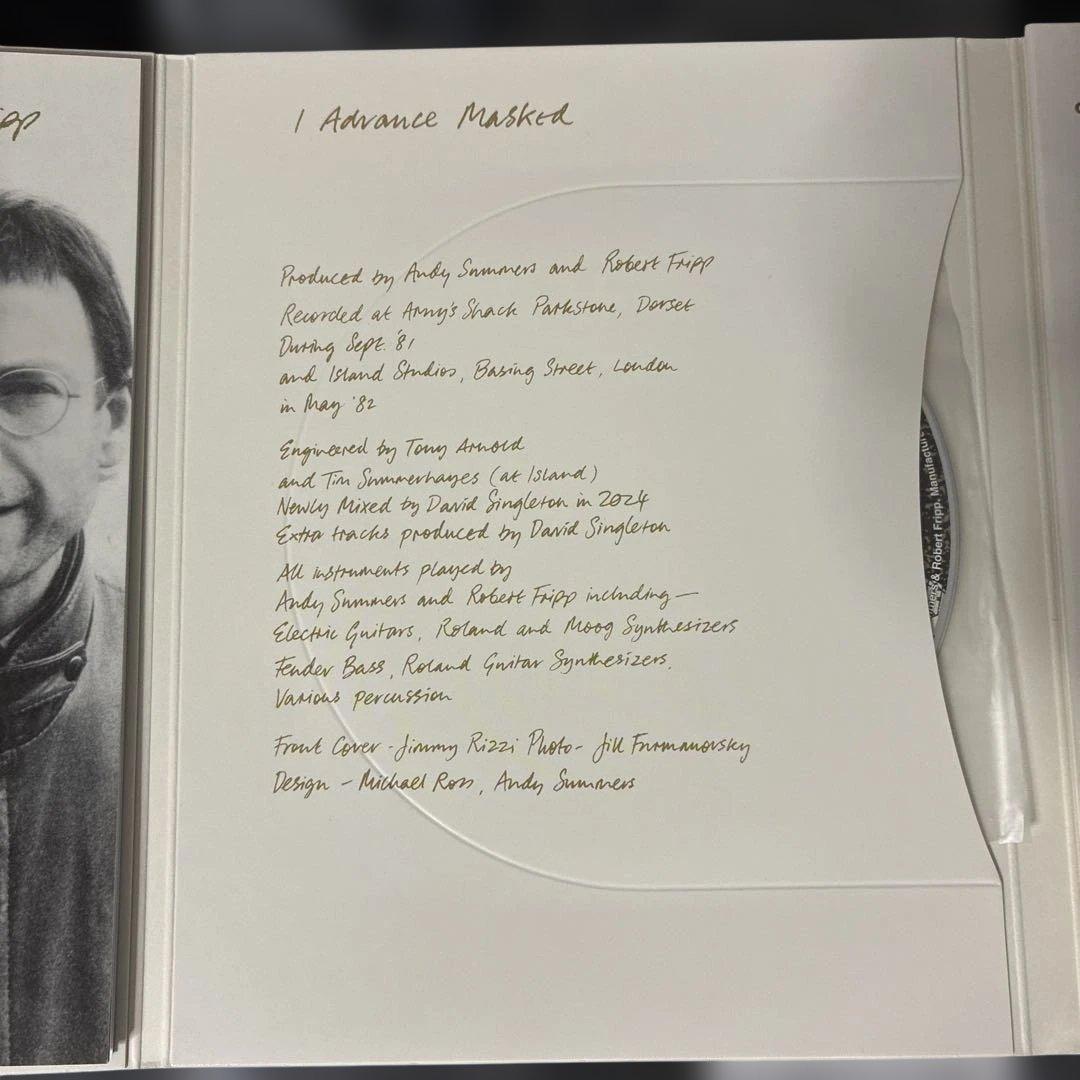 ipp
I Advance Masked
Produced by Andy Summers and Robert Fripp
Recorded at Arny's Shack Parkstone, Dorset
During Sept. '81
and Island Studios, Basing Street, London
in May '82
Engineered by Tony Arnold
and Tim Summerhayes (at Island)
Newly Mixed by David Singleton in 2024
Extra tracks produced by David Singleton
All instruments played by
Andy Summers and Robert Fripp including —
Electric Guitars, Roland and Moog Synthesizers
Fender Bass, Roland Guitar Synthesizers,
Various percussion
Front Cover - Jimmy Rizzi Photo - Jill Furmanovsky
Design - Michael Ross, Andy Summers
& Robert Fripp. Manufacture